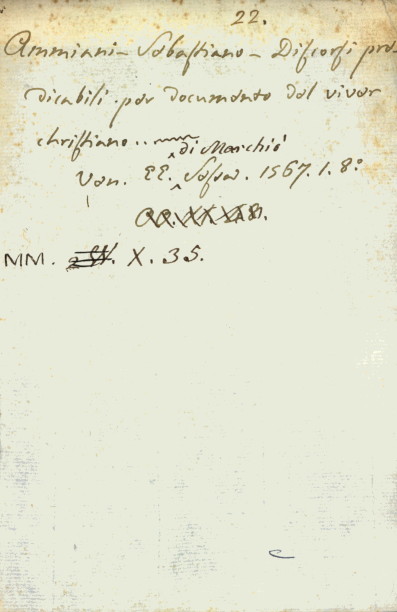 22.
Ammiani - Sebastiano - Discorsi pre-
dicabili per documento del viver
christiano..
di Marchiò
Ven. EE. Sessa. 1567. 1. 8º
MM. X. 35.